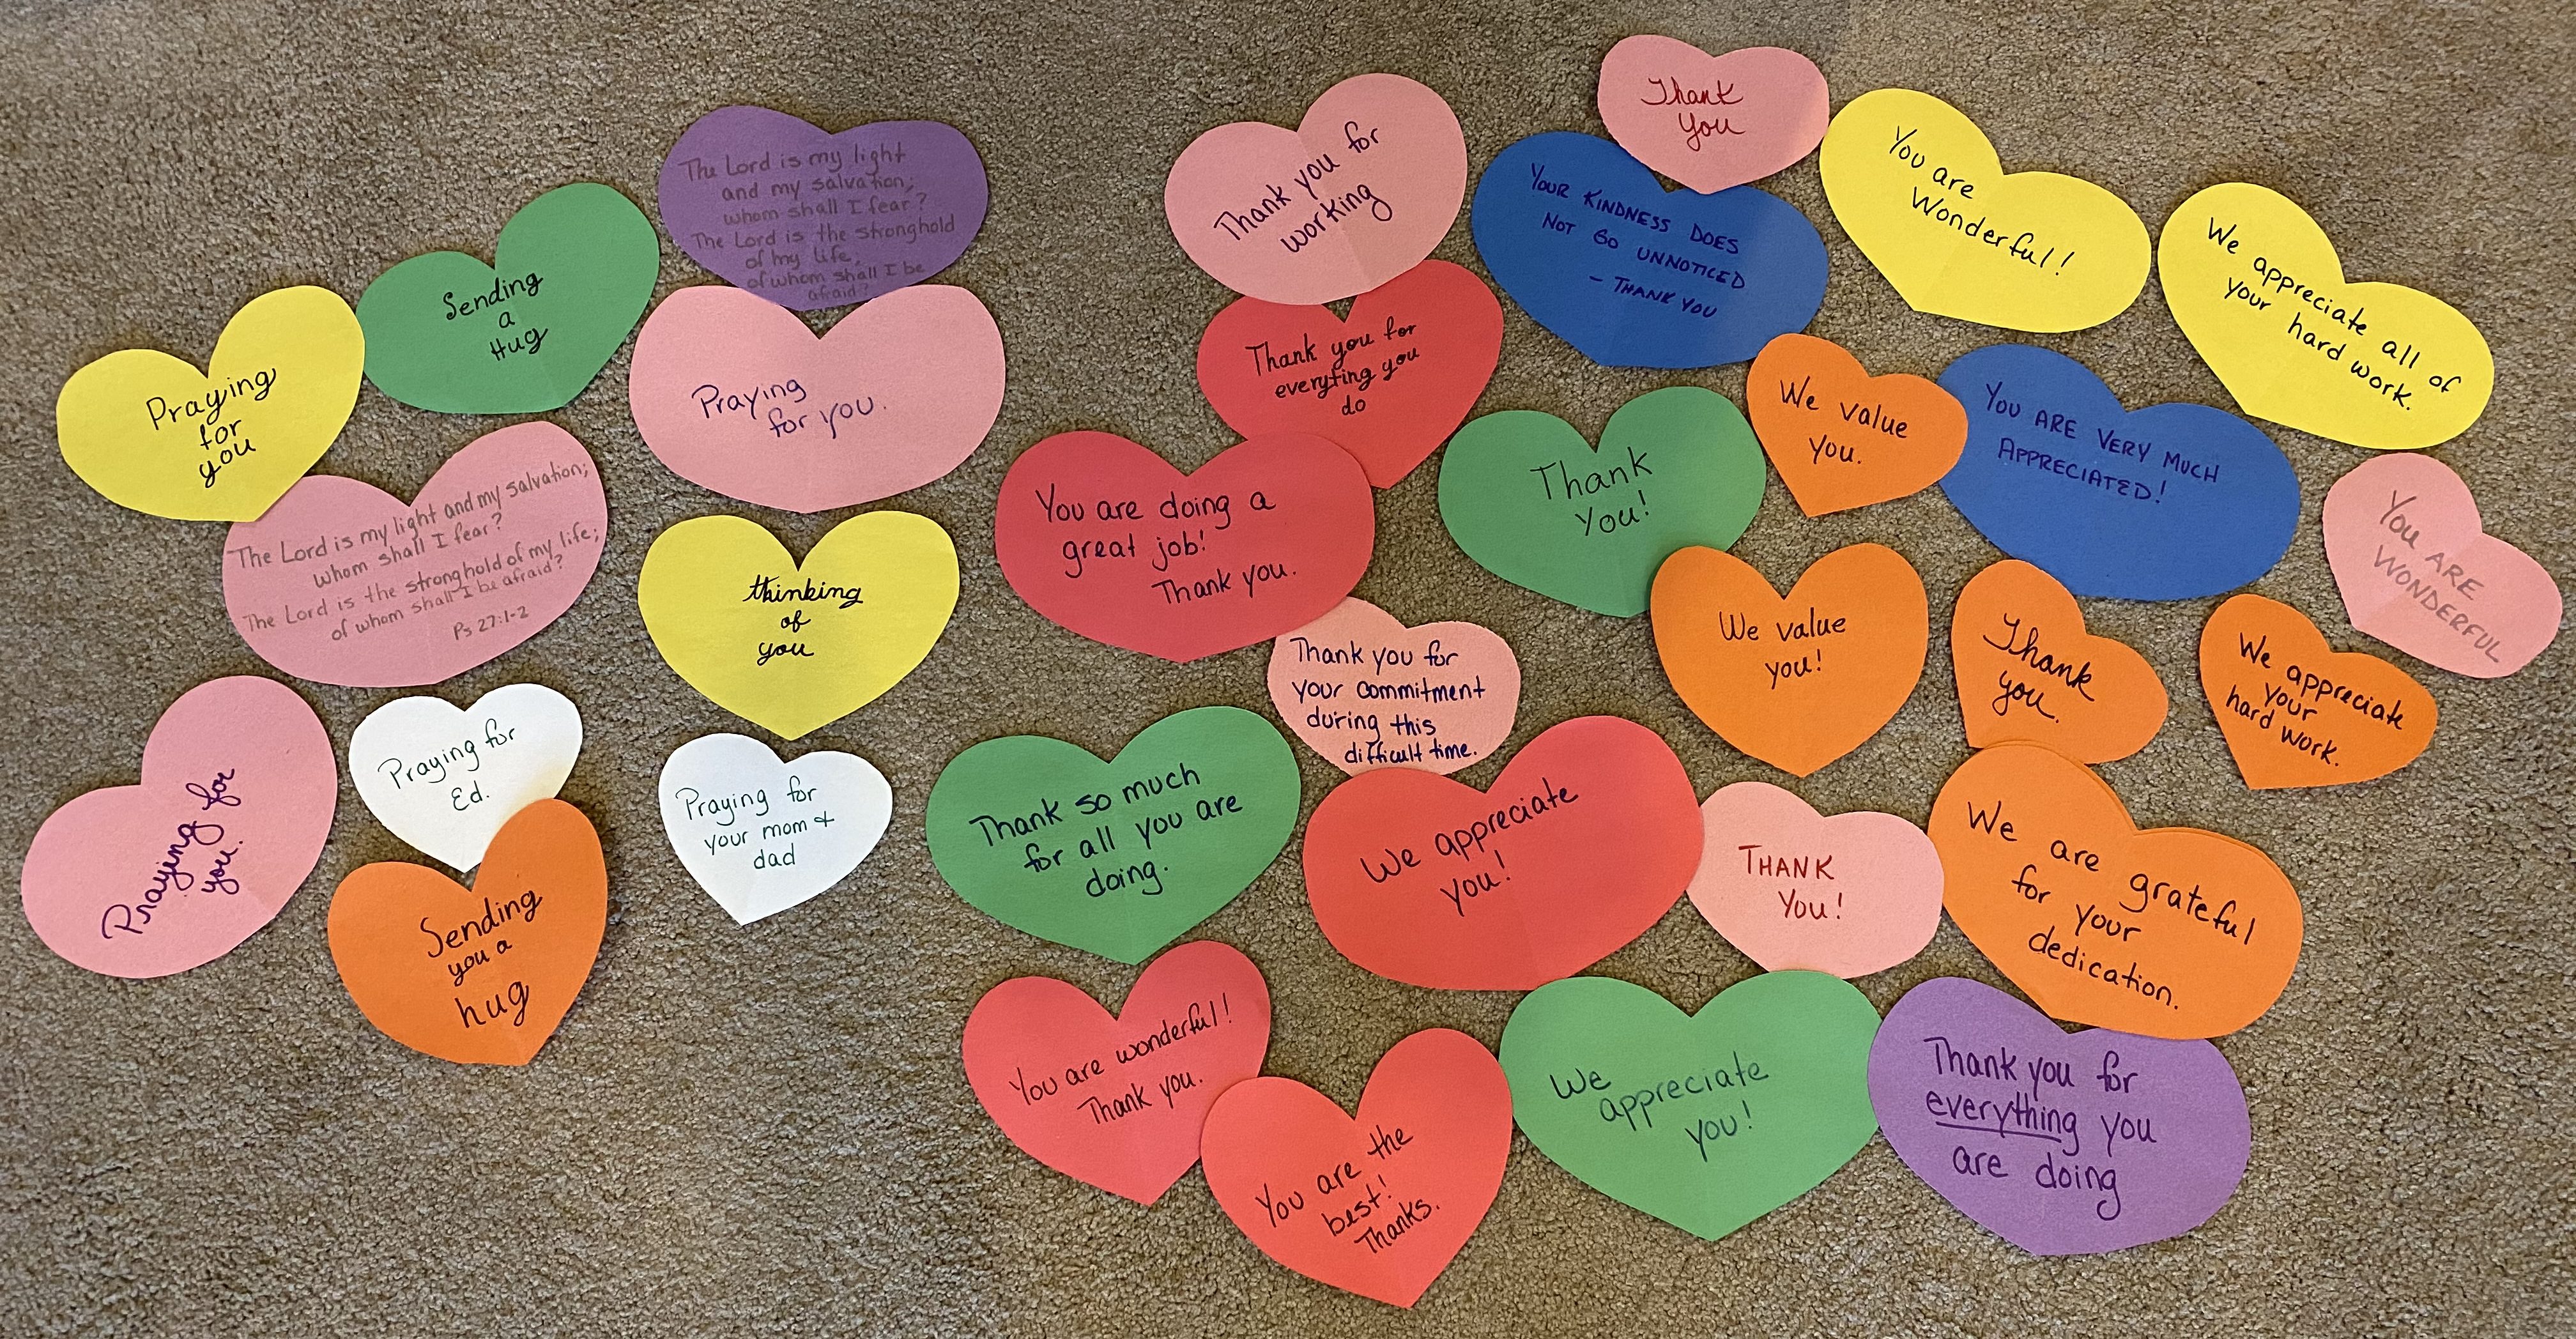 The Lord is my light
and my salvation;
whom shall I fear?
The Lord is the stronghold
of my life,
of whom shall I be
afraid?
Sending
a
Hug
Praying
for
you
Praying
for you.
The Lord is my light and my salvation;
whom shall I fear?
The Lord is the stronghold of my life;
of whom shall I be afraid?
Ps 27:1-2
thinking
of
you
Praying for
you.
Praying for
Ed.
Praying for
your mom +
dad
Sending
you a
hug
Thank
you
Thank you for
working
YOUR KINDNESS DOES
NOT GO UNNOTICED
- THANK YOU
You are
Wonderful!
We appreciate all of
your hard work.
Thank you for
everyting you
do
We value
you.
YOU ARE VERY MUCH
APPRECIATED!
You are doing a
great job!
Thank you.
Thank
you!
YOU ARE
WONDERFUL
Thank you for
your commitment
during this
difficult time.
We value
you!
Thank
you.
We appreciate
your
hard work.
Thank so much
for all you are
doing.
We appreciate
you!
THANK
YOU!
We are grateful
for your
dedication.
You are wonderful!
Thank you.
You are the
best!
Thanks.
We
appreciate
you!
Thank you for
everything you
are doing